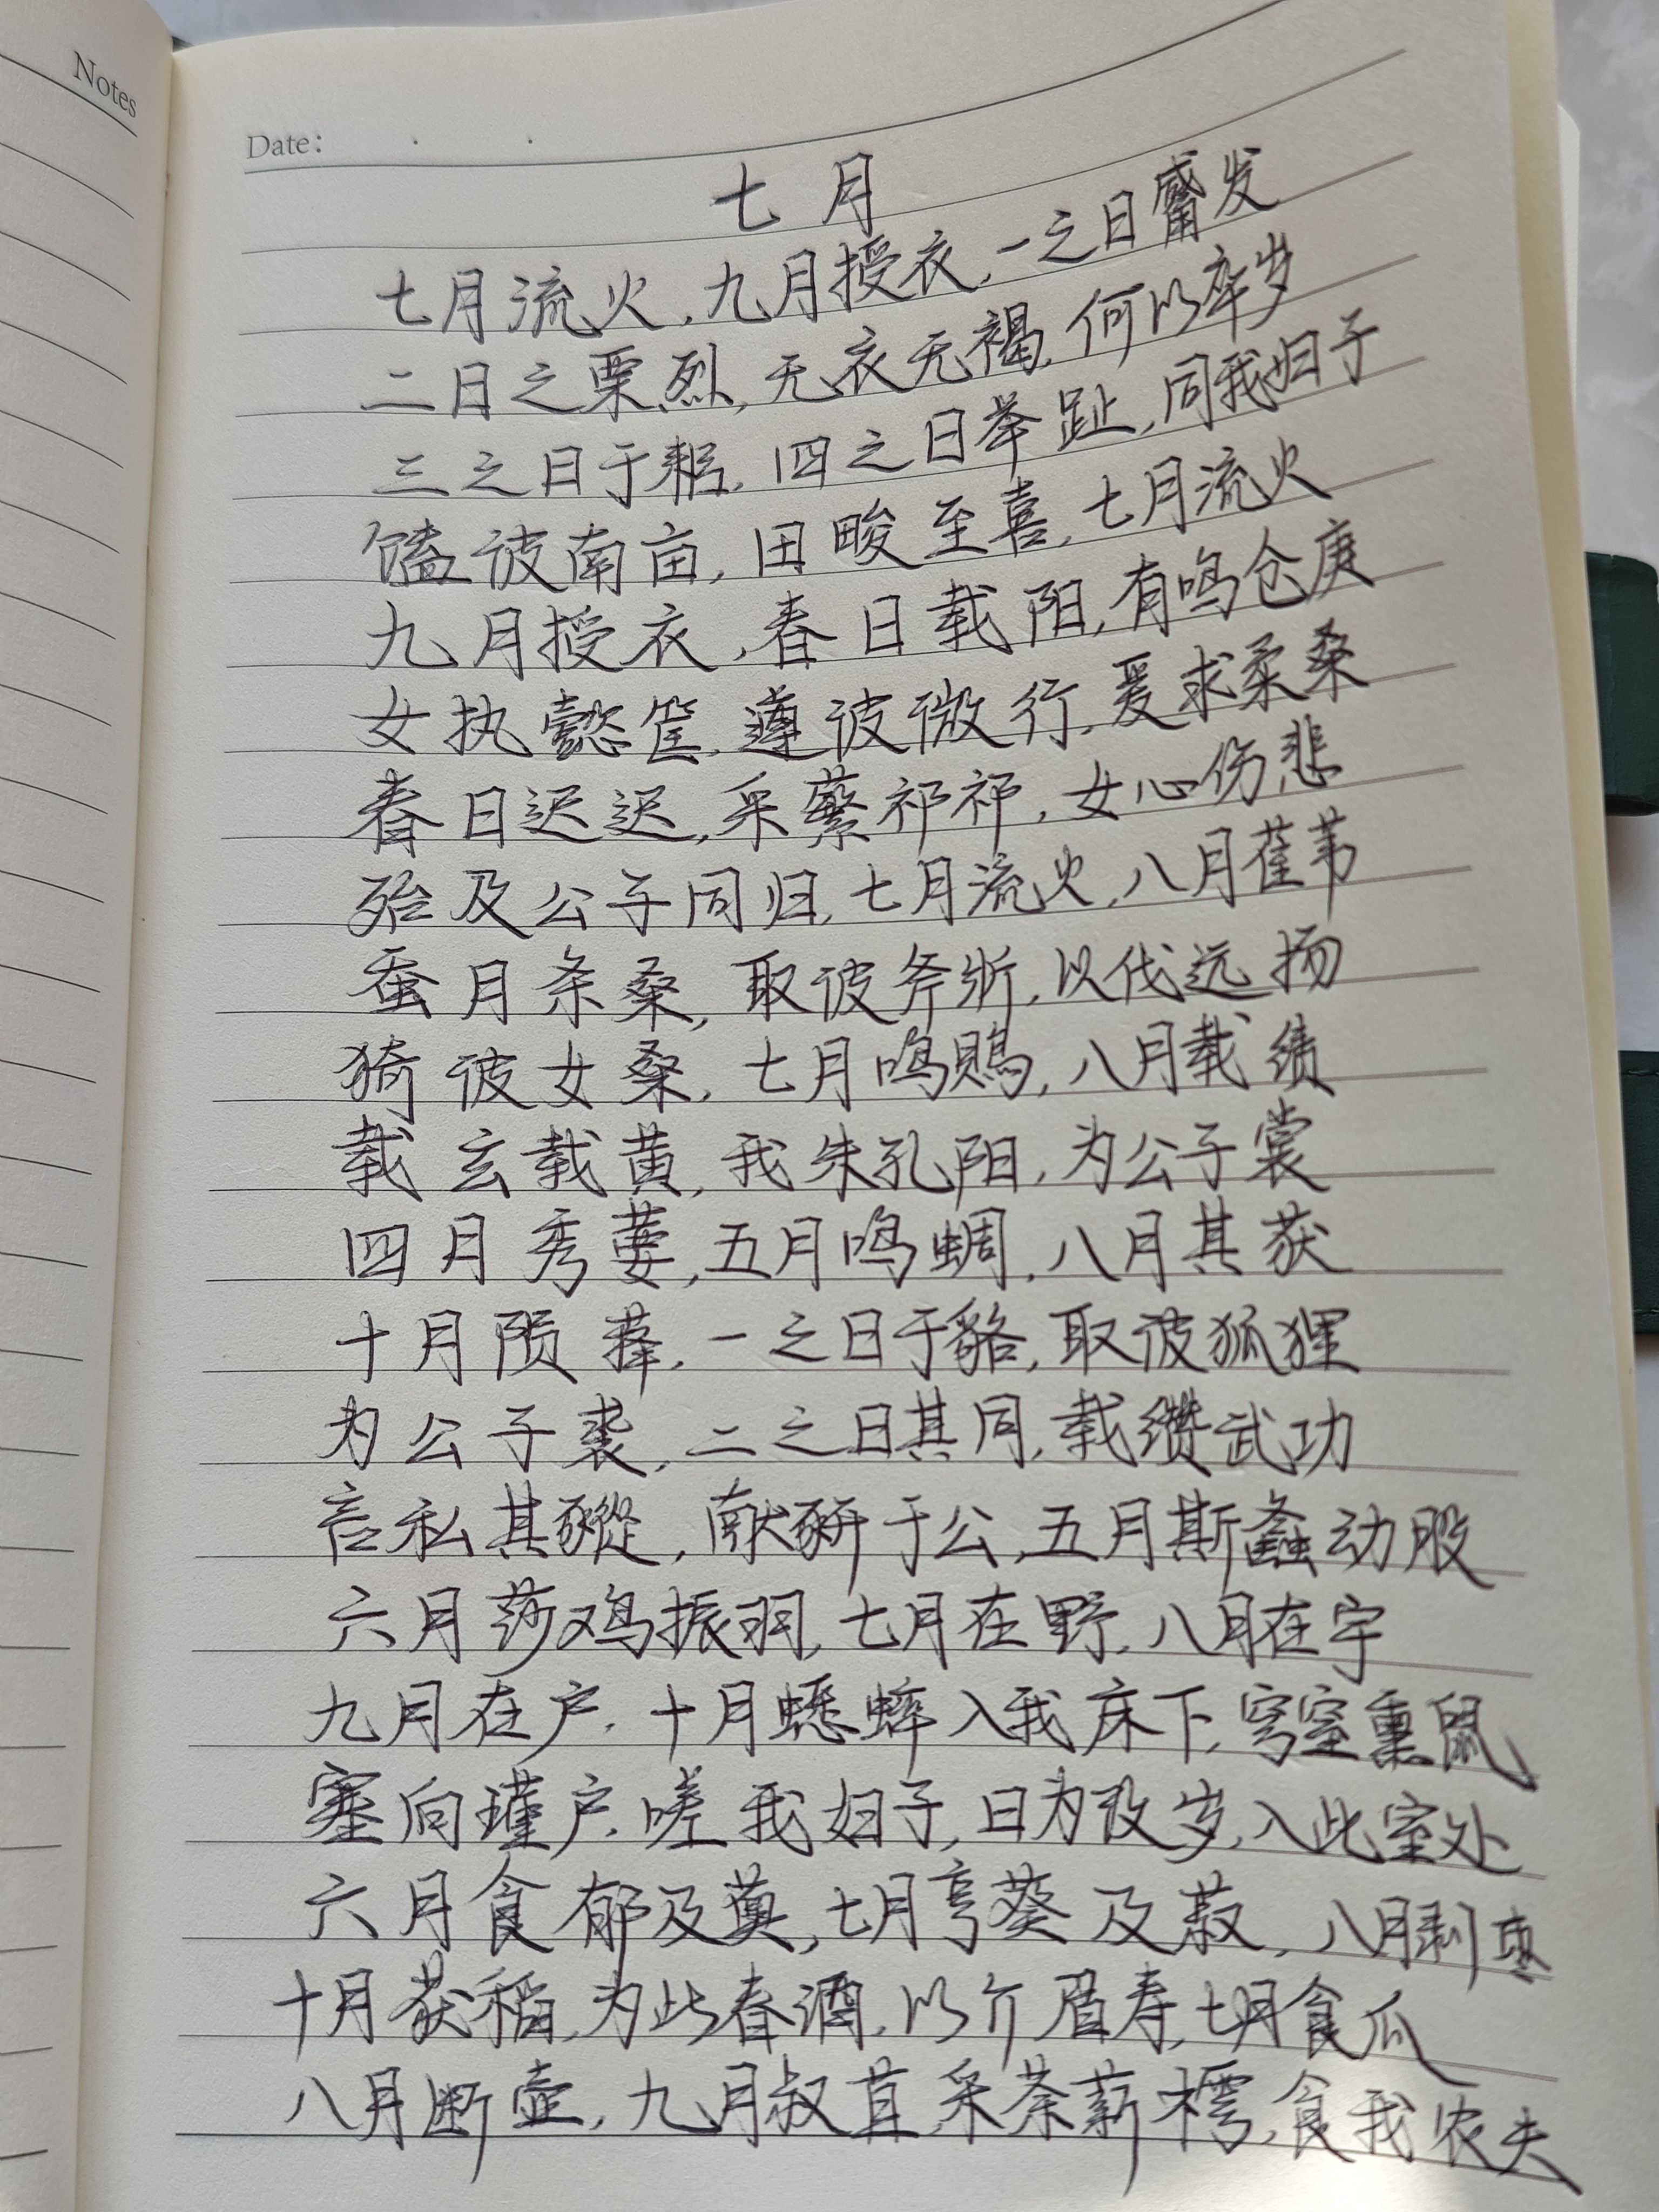 Notes
Date:
七月
七月流火,九月授衣,一之日觱发
二日之栗烈,无衣无褐,何以卒岁
三之日于耜,四之日举趾,同我归子
馌彼南亩,田畯至喜,七月流火
九月授衣,春日载阳,有鸣仓庚
女执懿筐,遵彼微行,爰求柔桑
春日迟迟,采蘩祁祁,女心伤悲
殆及公子同归,七月流火,八月萑苇
蚕月条桑,取彼斧斨,以伐远扬
猗彼女桑,七月鸣鵙,八月载绩
载玄载黄,我朱孔阳,为公子裳
四月秀葽,五月鸣蜩,八月其获
十月陨萚,一之日于貉,取彼狐狸
为公子裘,二之日其同,载缵武功
言私其豵,献豜于公,五月斯螽动股
六月莎鸡振羽,七月在野,八月在宇
九月在户,十月蟋蟀入我床下,穹窒熏鼠
塞向瑾户,嗟我妇子,曰为改岁,入此室处
六月食郁及薁,七月亨葵及菽,八月剥枣
十月获稻,为此春酒,以介眉寿,七月食瓜
八月断壶,九月叔苴,采荼薪樗,食我农夫